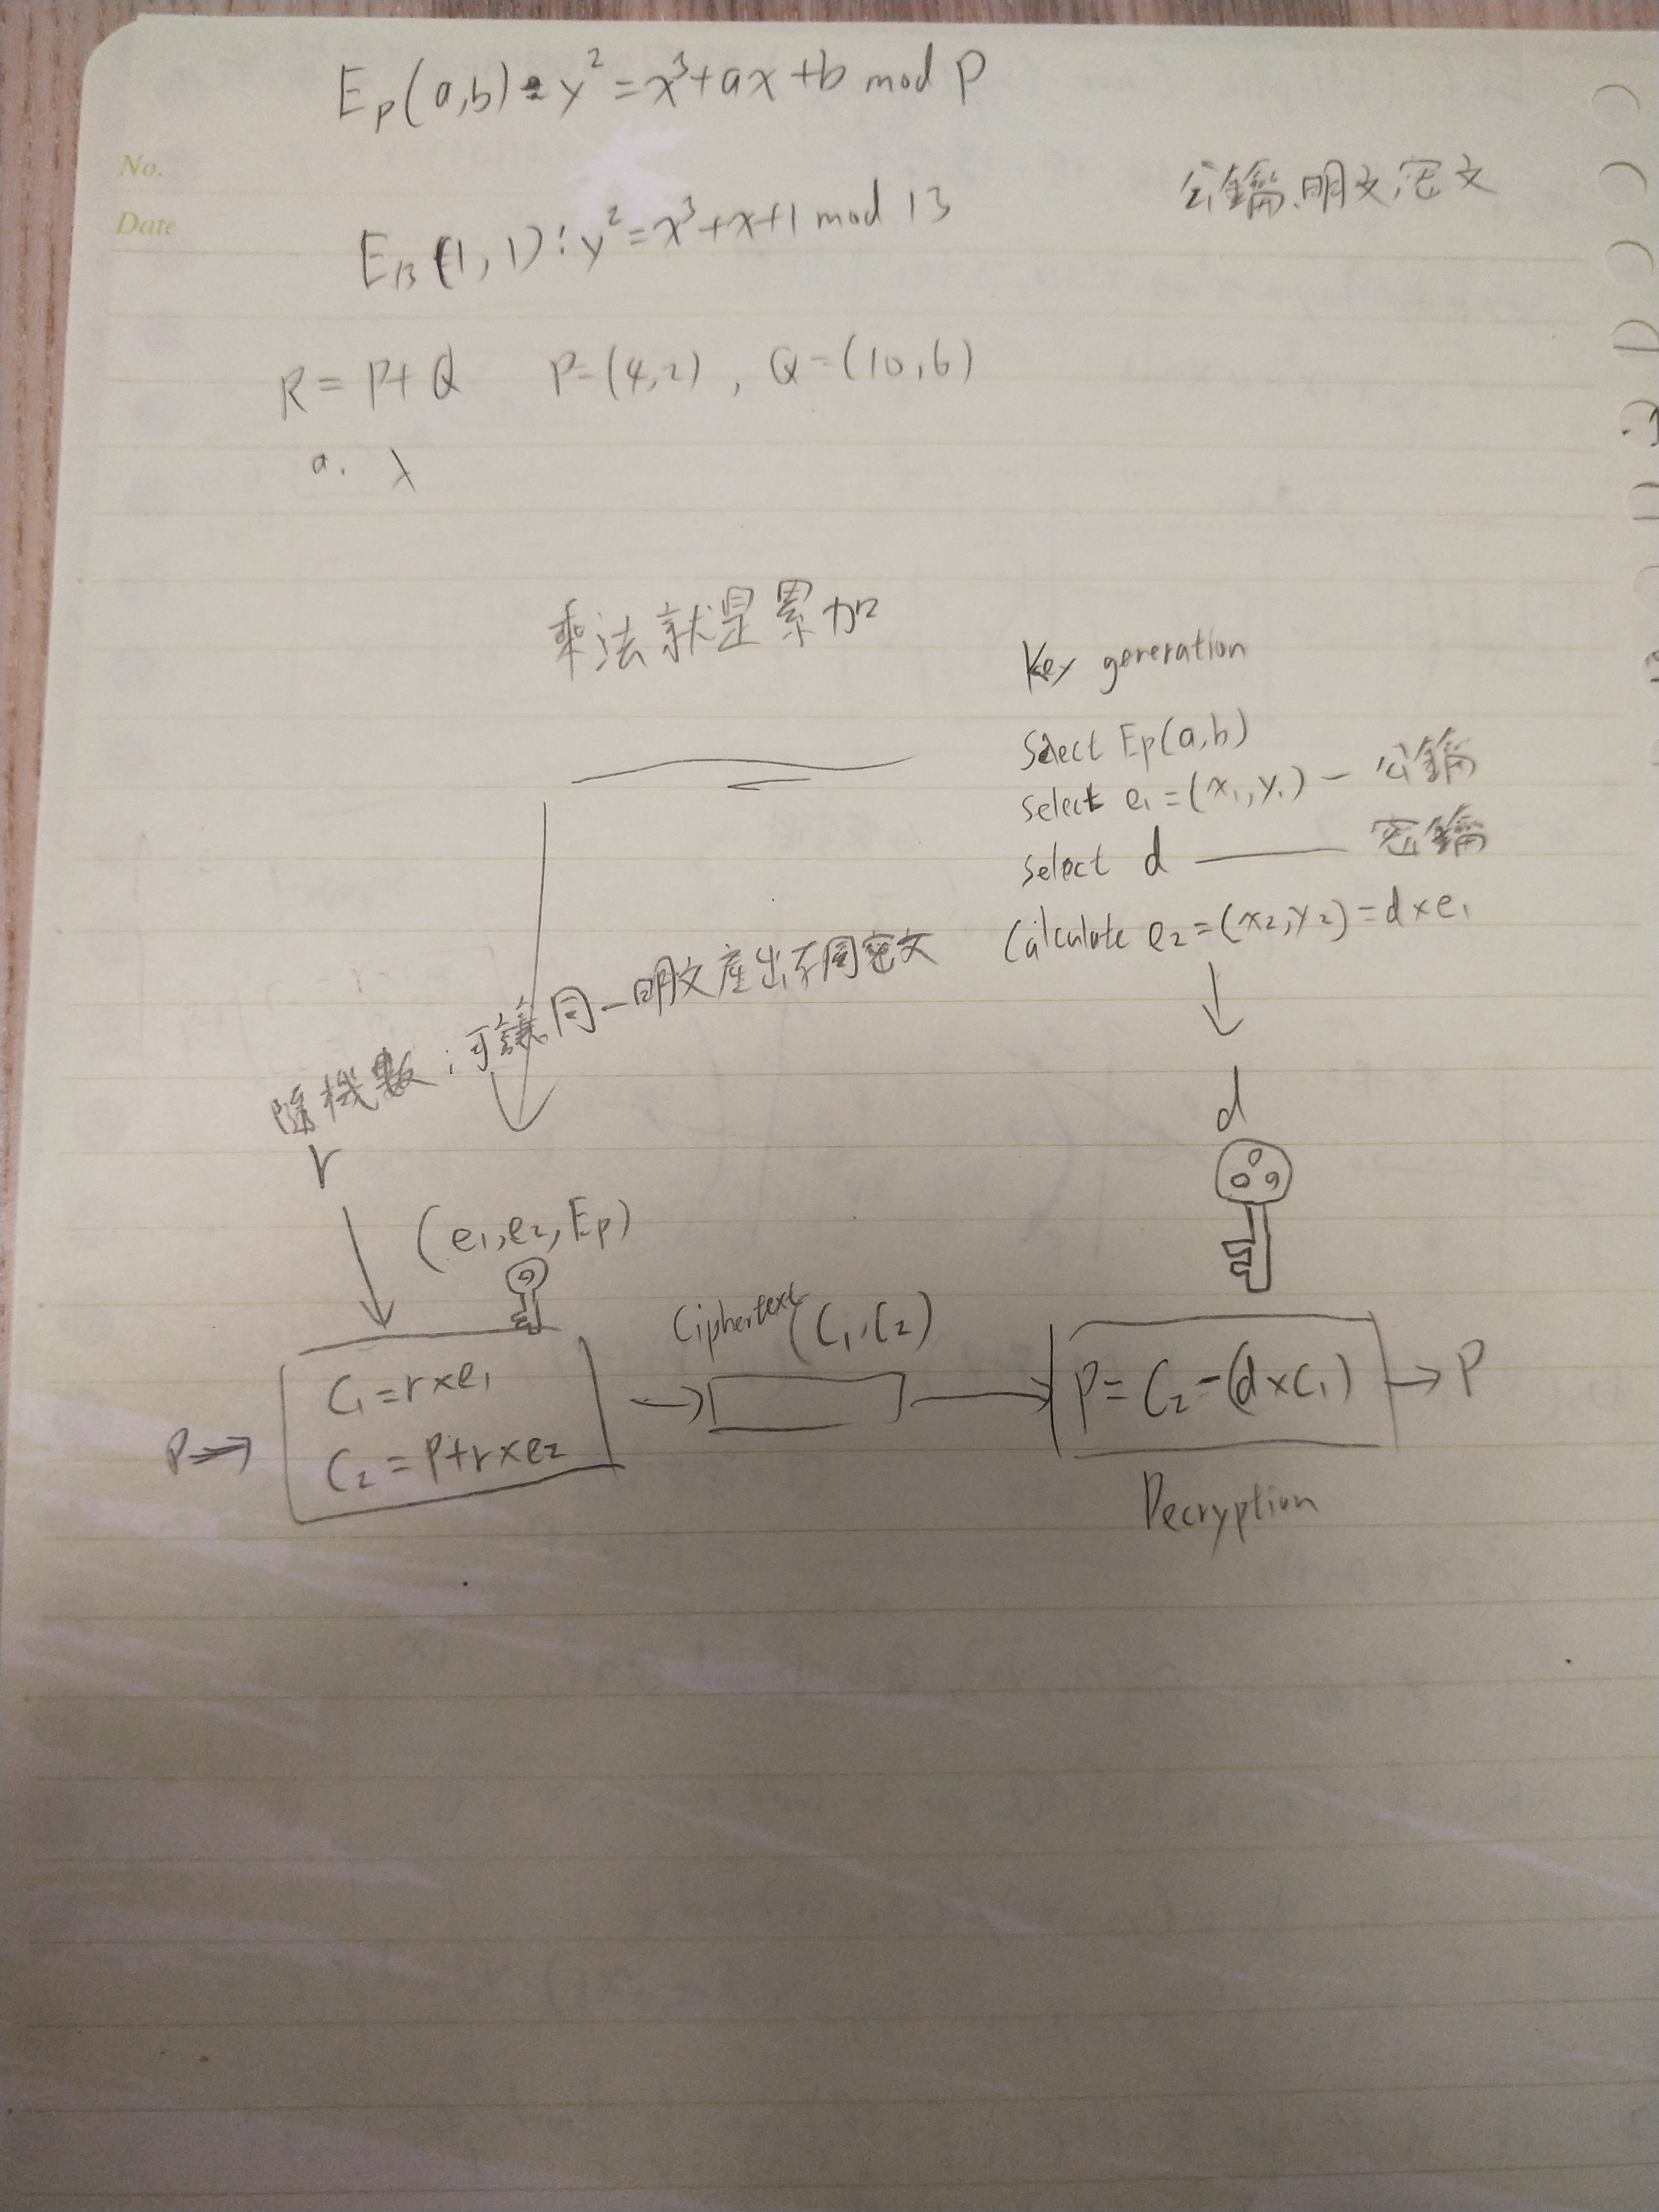 E_p(a,b): y² = x³+ax+b mod p
No.
公鑰、明文、密文
Date
E_13(1,1): y² = x³+x+1 mod 13
R = P+Q P=(4,2), Q=(10,6)
a. λ
乘法就是累加
Key generation
Select Ep(a,b)
Select e₁=(x₁,y₁) — 公鑰
Select d —— 密鑰
Calculate e₂=(x₂,y₂)=d×e₁
隨機數:可讓同一明文產出不同密文
r
d
(e₁,e₂,Ep)
Ciphertext (C₁,C₂)
C₁=r×e₁
P→
C₂=P+r×e₂
P=C₂-(d×C₁) → P
Decryption